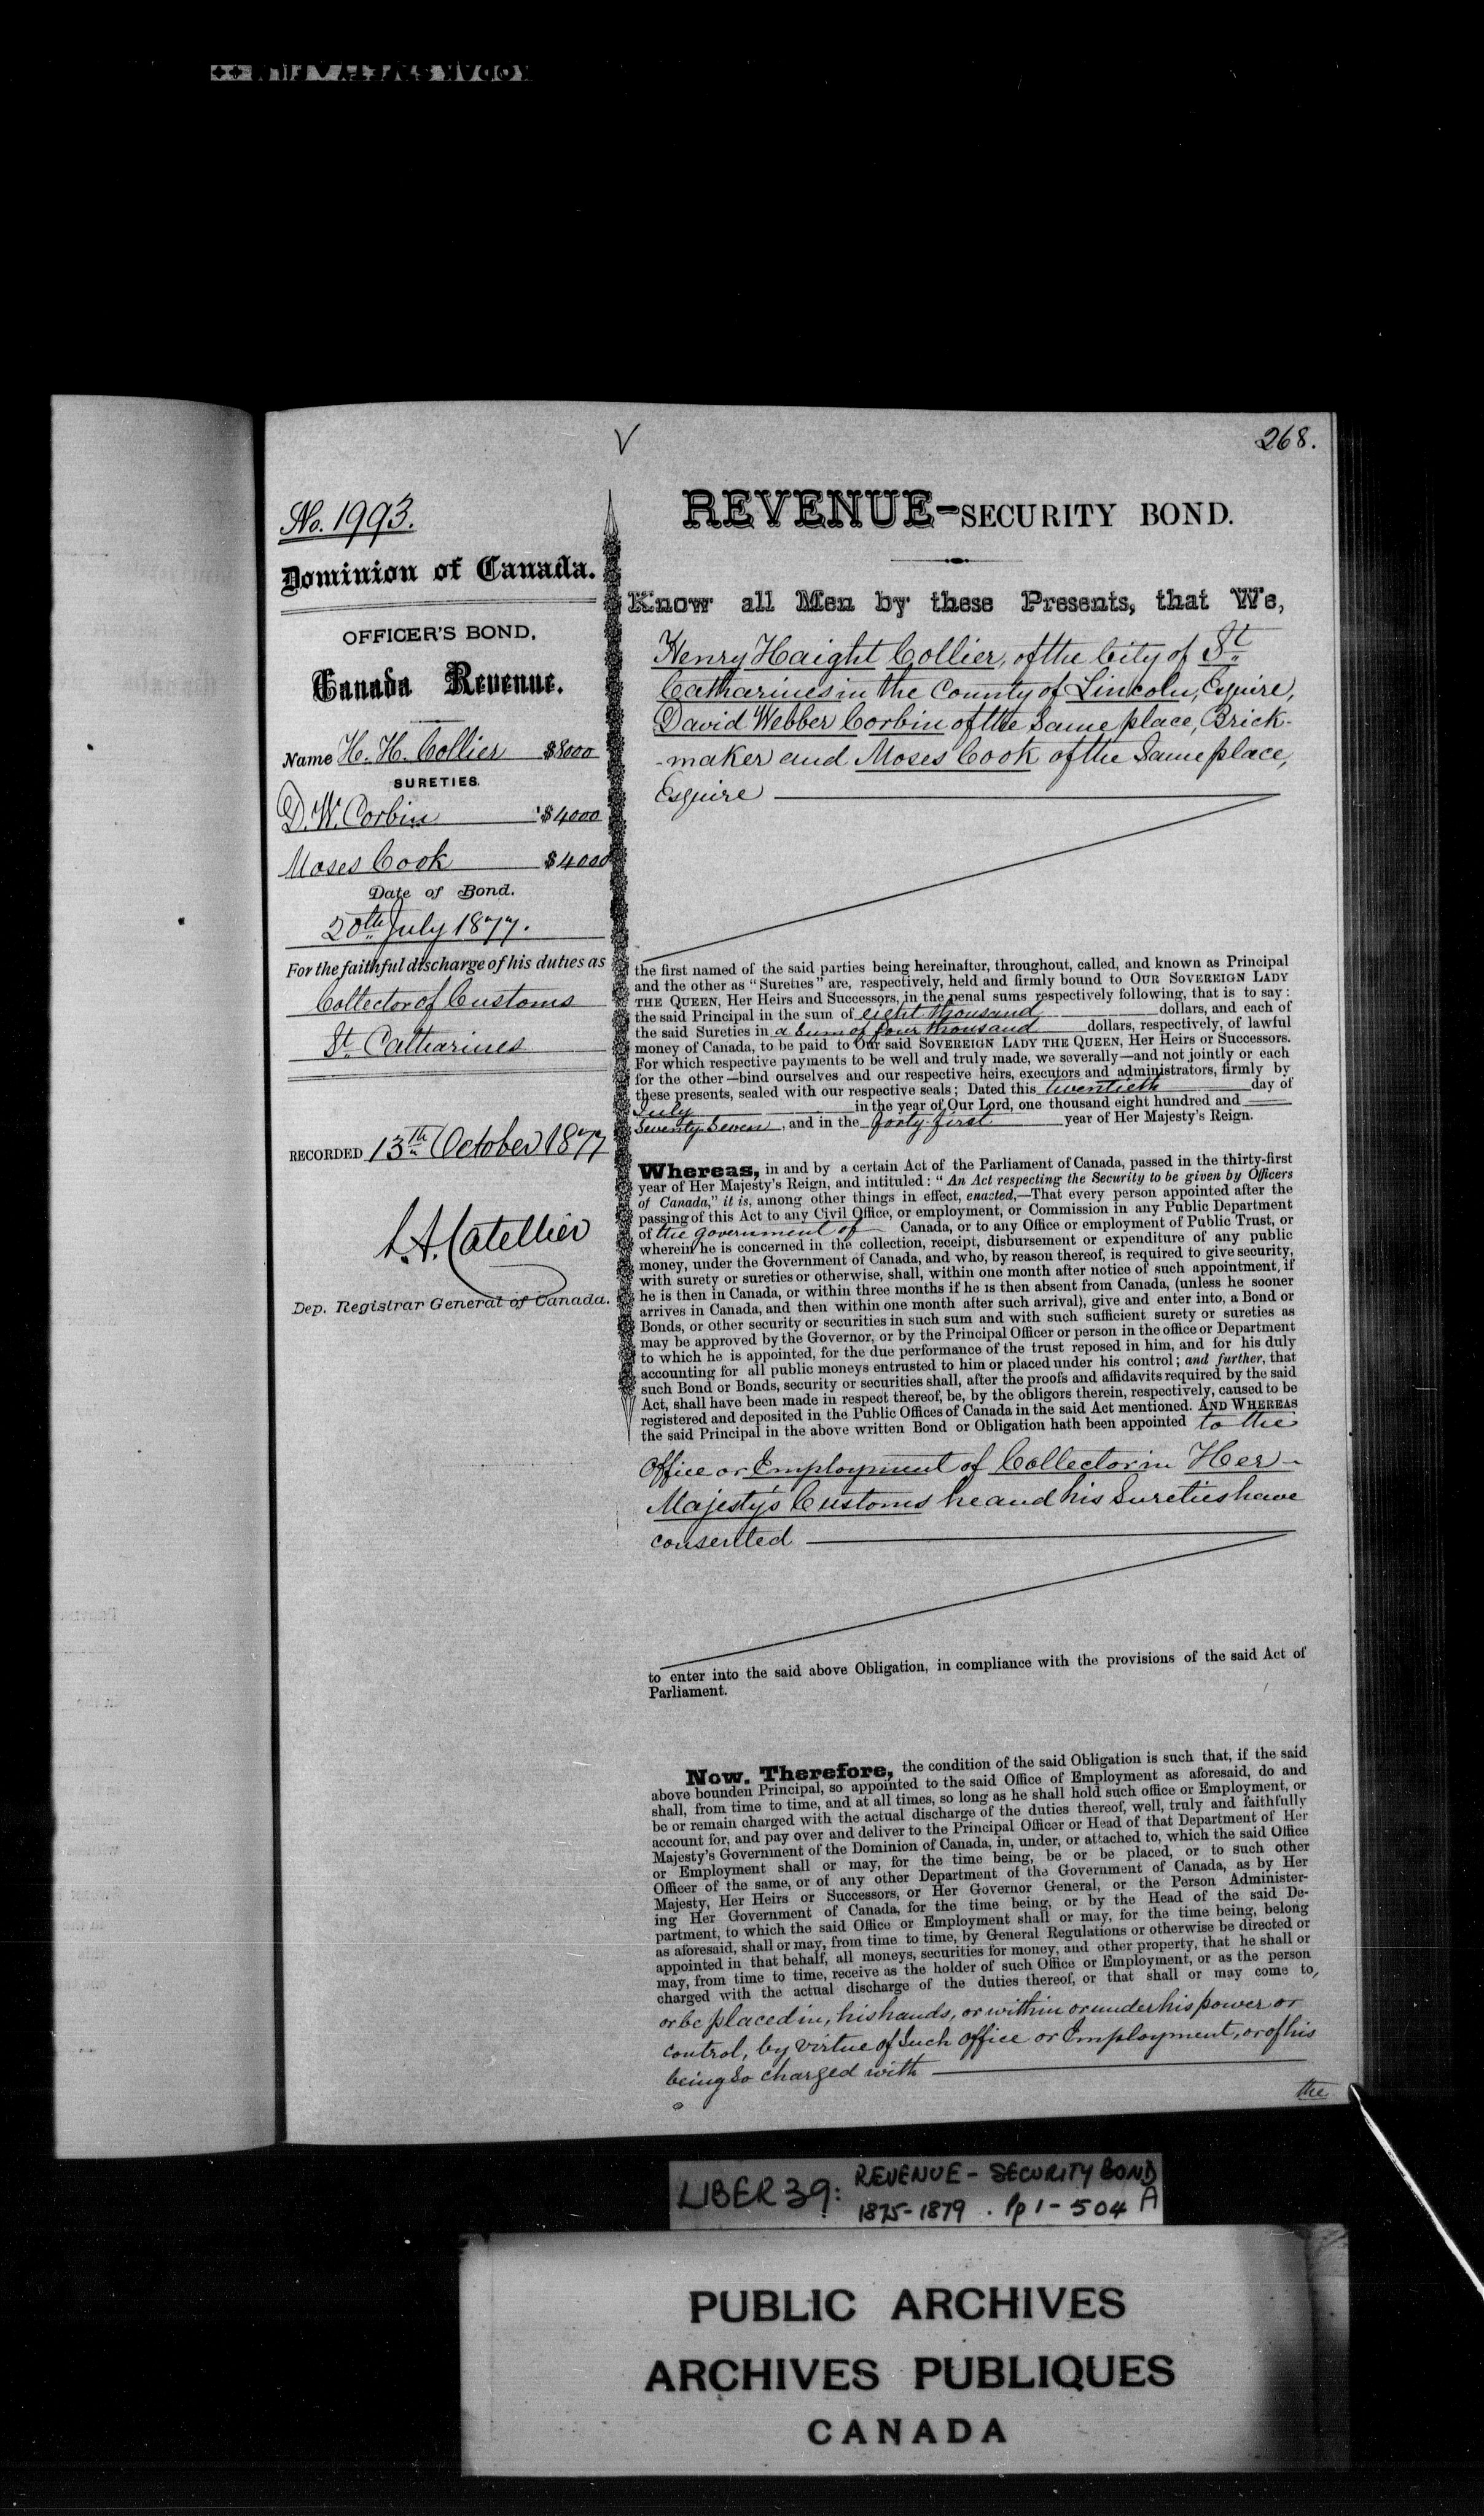 268.
No. 1993.
Dominion of Canada.
OFFICER'S BOND.
Canada Revenue.
Name H. H. Collier $8000
SURETIES.
D. W. Corbin $4000
Moses Cook $4000
Date of Bond.
20th July 1877.
For the faithful discharge of his duties as
Collector of Customs
St. Catharines
RECORDED 13th October 1877
L. A. Catellier
Dep. Registrar General of Canada.
REVENUE-SECURITY BOND.
Know all Men by these Presents, that We,
Henry Haight Collier, of the City of St.
Catharines in the County of Lincoln, Esquire,
David Webber Corbin of the Same place, Brick-
-maker and Moses Cook of the Same place,
Esquire
the first named of the said parties being hereinafter, throughout, called, and known as Principal
and the other as "Sureties" are, respectively, held and firmly bound to OUR SOVEREIGN LADY
THE QUEEN, Her Heirs and Successors, in the penal sums respectively following, that is to say:
the said Principal in the sum of eight thousand dollars, and each of
the said Sureties in a Sum of four thousand dollars, respectively, of lawful
money of Canada, to be paid to Our said SOVEREIGN LADY THE QUEEN, Her Heirs or Successors.
For which respective payments to be well and truly made, we severally—and not jointly or each
for the other—bind ourselves and our respective heirs, executors and administrators, firmly by
these presents, sealed with our respective seals; Dated this twentieth day of
July in the year of Our Lord, one thousand eight hundred and
Seventy Seven, and in the forty-first year of Her Majesty's Reign.
Whereas, in and by a certain Act of the Parliament of Canada, passed in the thirty-first
year of Her Majesty's Reign, and intituled: "An Act respecting the Security to be given by Officers
of Canada," it is, among other things in effect, enacted,—That every person appointed after the
passing of this Act to any Civil Office, or employment, or Commission in any Public Department
of the government of Canada, or to any Office or employment of Public Trust, or
wherein he is concerned in the collection, receipt, disbursement or expenditure of any public
money, under the Government of Canada, and who, by reason thereof, is required to give security,
with surety or sureties or otherwise, shall, within one month after notice of such appointment, if
he is then in Canada, or within three months if he is then absent from Canada, (unless he sooner
arrives in Canada, and then within one month after such arrival), give and enter into, a Bond or
Bonds, or other security or securities in such sum and with such sufficient surety or sureties as
may be approved by the Governor, or by the Principal Officer or person in the office or Department
to which he is appointed, for the due performance of the trust reposed in him, and for his duly
accounting for all public moneys entrusted to him or placed under his control; and further, that
such Bond or Bonds, security or securities shall, after the proofs and affidavits required by the said
Act, shall have been made in respect thereof, be, by the obligors therein, respectively, caused to be
registered and deposited in the Public Offices of Canada in the said Act mentioned. AND WHEREAS
the said Principal in the above written Bond or Obligation hath been appointed to the
Office or Employment of Collector in Her
Majesty's Customs he and his Sureties have
consented
to enter into the said above Obligation, in compliance with the provisions of the said Act of
Parliament.
Now. Therefore, the condition of the said Obligation is such that, if the said
above bounden Principal, so appointed to the said Office of Employment as aforesaid, do and
shall, from time to time, and at all times, so long as he shall hold such office or Employment, or
be or remain charged with the actual discharge of the duties thereof, well, truly and faithfully
account for, and pay over and deliver to the Principal Officer or Head of that Department of Her
Majesty's Government of the Dominion of Canada, in, under, or attached to, which the said Office
or Employment shall or may, for the time being, be or be placed, or to such other
Officer of the same, or of any other Department of the Government of Canada, as by Her
Majesty, Her Heirs or Successors, or Her Governor General, or the Person Administer-
ing Her Government of Canada, for the time being, or by the Head of the said De-
partment, to which the said Office or Employment shall or may, for the time being, belong
as aforesaid, shall or may, from time to time, by General Regulations or otherwise be directed or
appointed in that behalf, all moneys, securities for money, and other property, that he shall or
may, from time to time, receive as the holder of such Office or Employment, or as the person
charged with the actual discharge of the duties thereof, or that shall or may come to,
or be placed in, his hands, or within or under his power or
control, by virtue of Such Office or Employment, or of his
being So charged with
the
LIBER 39: REVENUE - SECURITY BOND
1875-1879 . Pp 1 - 504 A
PUBLIC ARCHIVES
ARCHIVES PUBLIQUES
CANADA